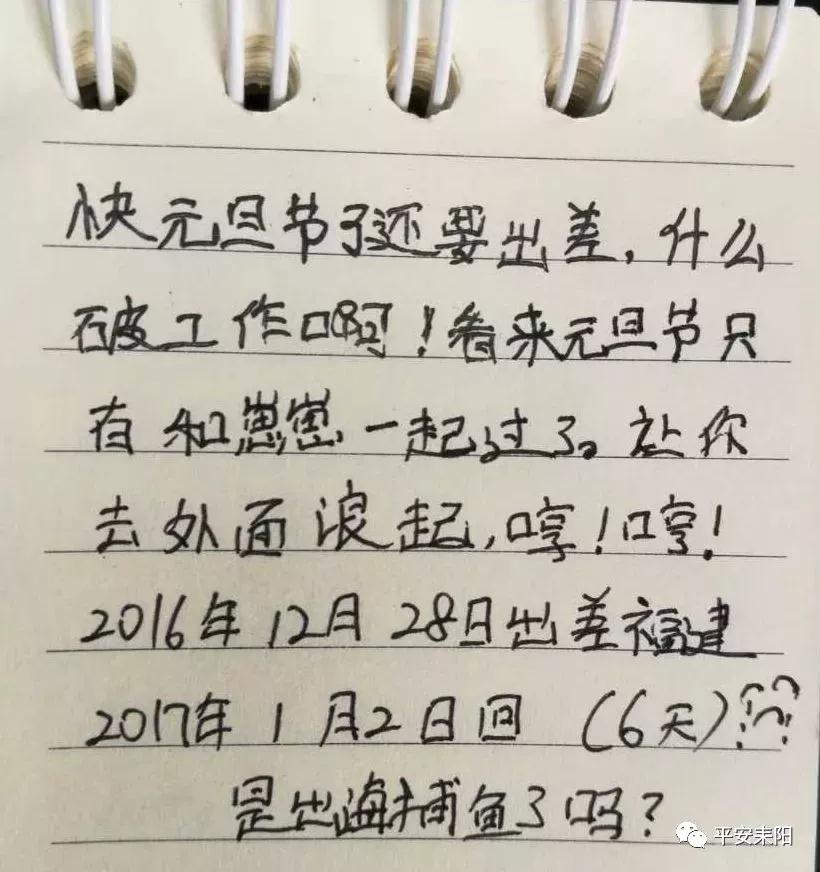 快元旦节了还要出差，什么
破工作啊！看来元旦节只
有和崽崽一起过了。让你
去外面浪起，哼！哼！
2016年12月28日出差福建
2017年1月2日回（6天）???
是出海捕鱼了吗？
平安耒阳